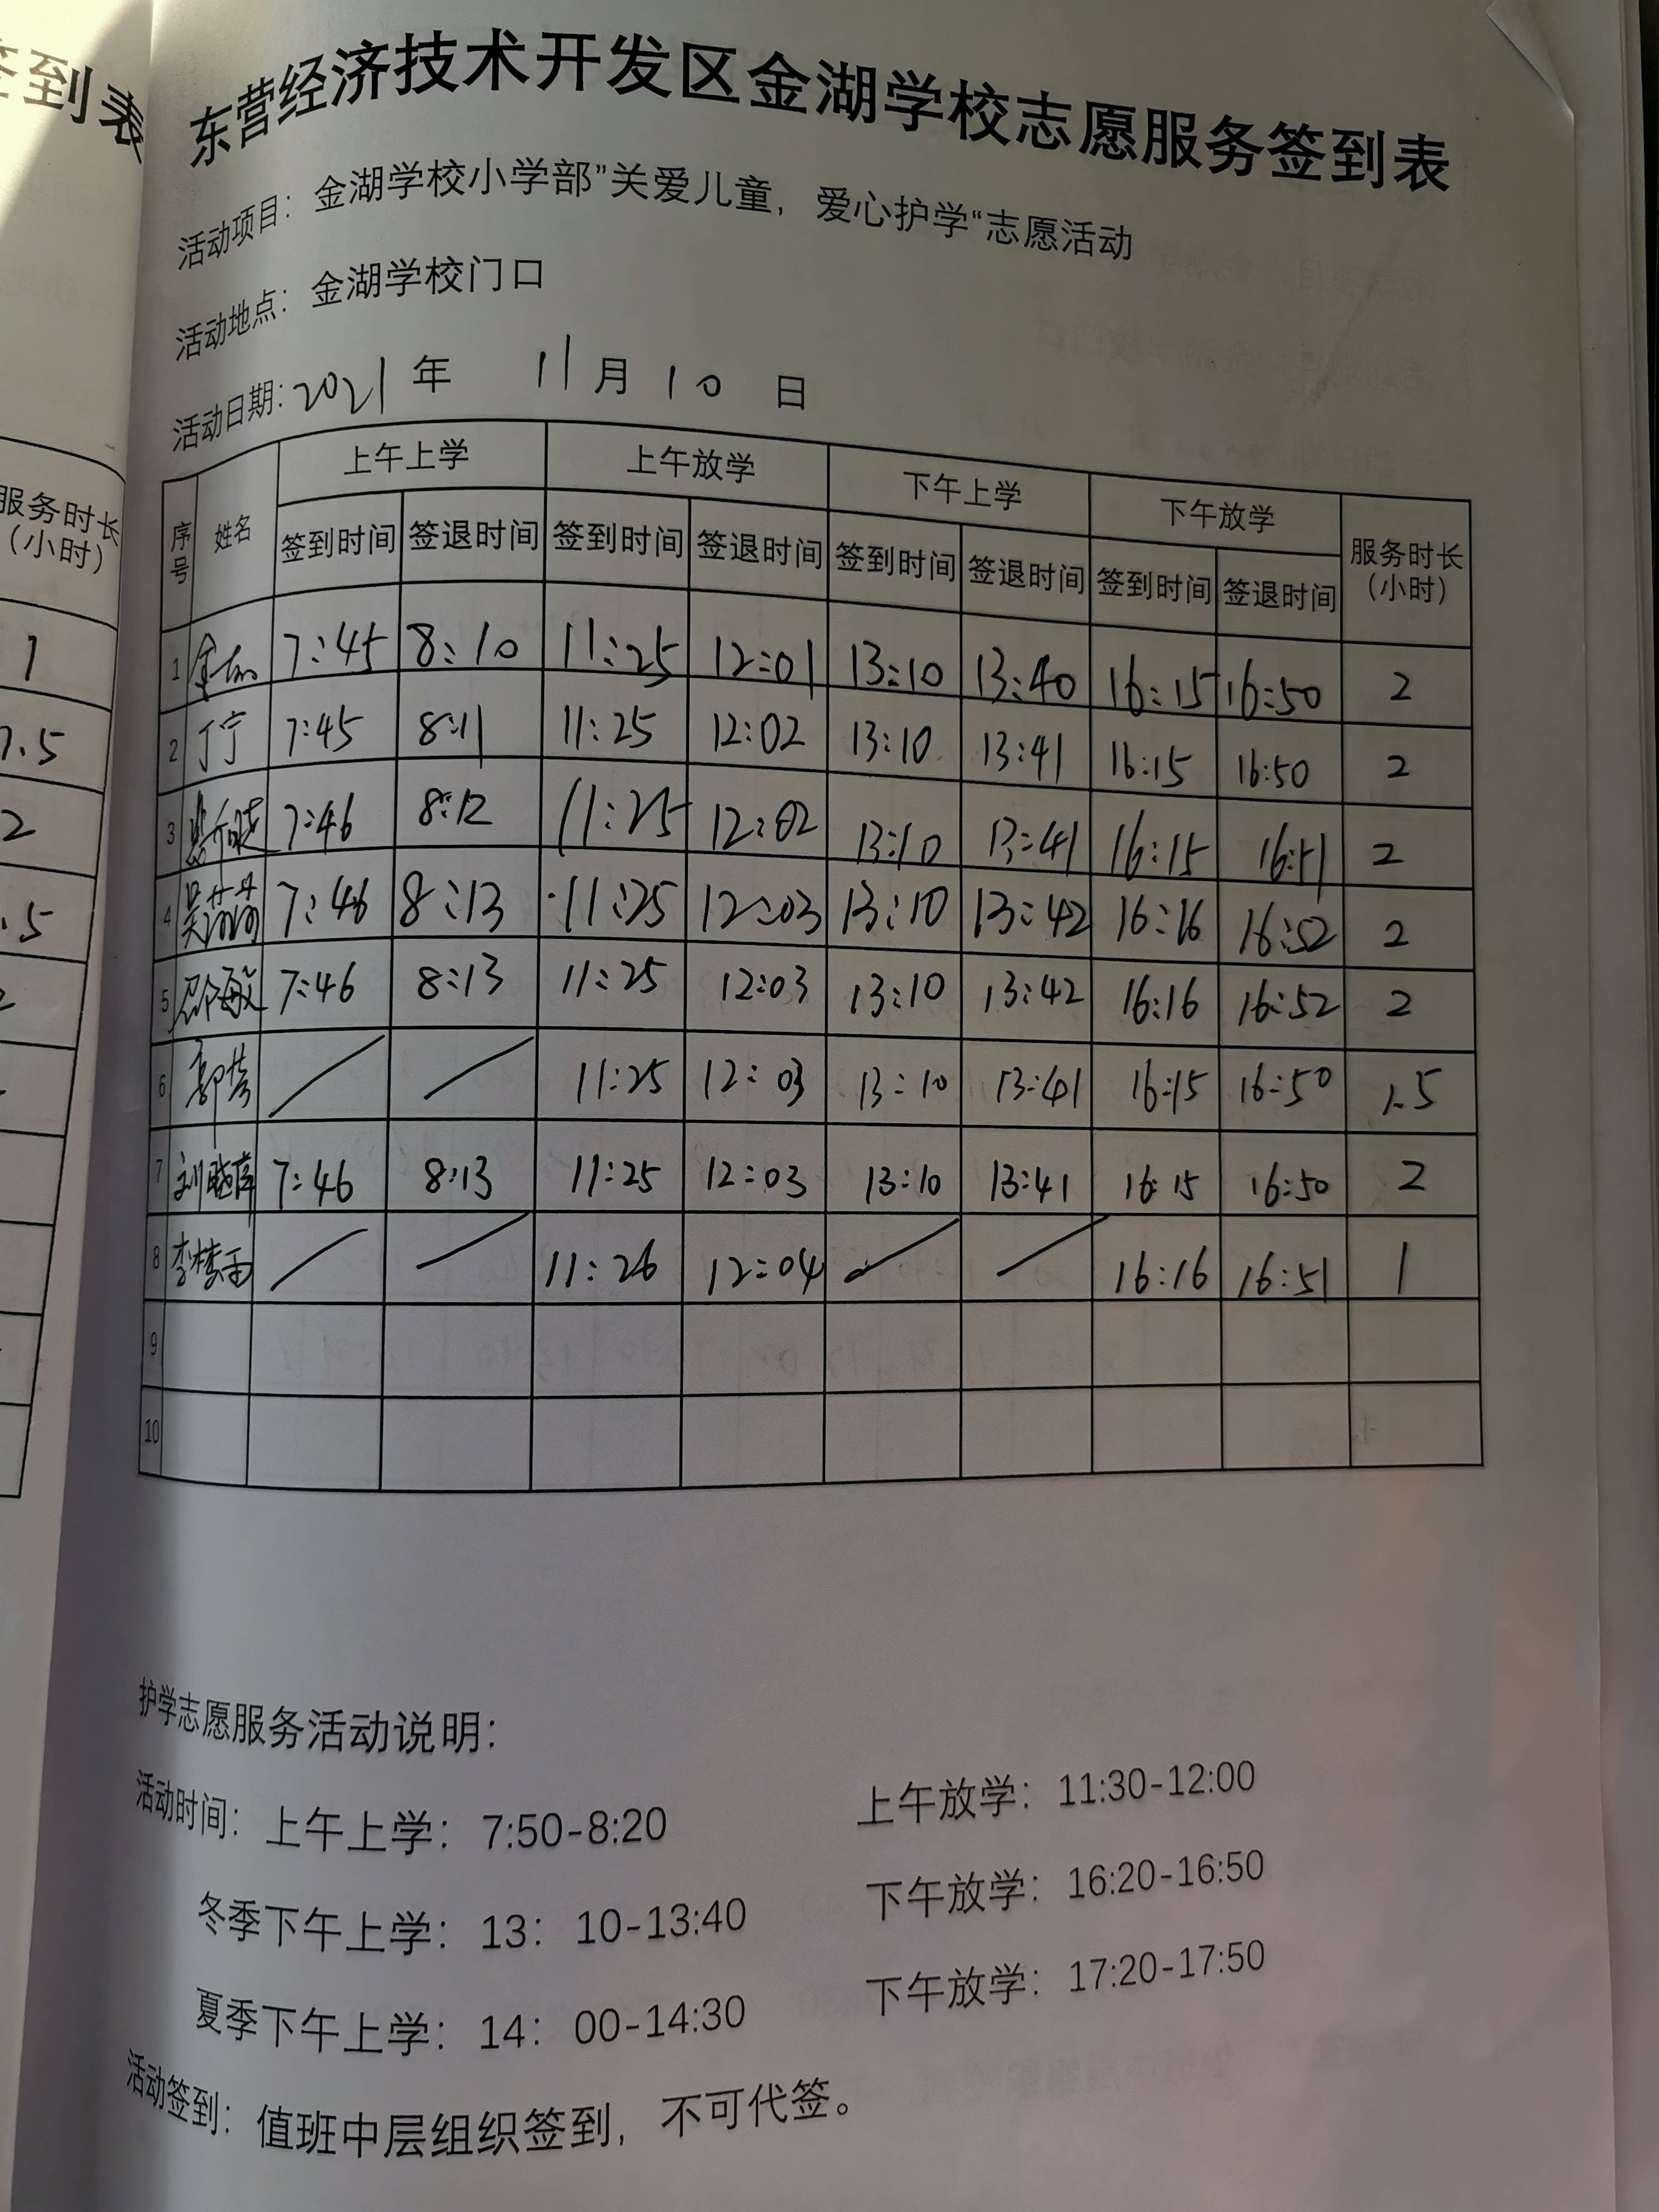 到表
服务时长
（小时）
1
2
东营经济技术开发区金湖学校志愿服务签到表
活动项目：金湖学校小学部”关爱儿童，爱心护学“志愿活动
活动地点：金湖学校门口
活动日期：2021 年 11 月 10 日
序号 姓名 上午上学 上午放学 下午上学 下午放学 服务时长（小时）
签到时间 签退时间 签到时间 签退时间 签到时间 签退时间 签到时间 签退时间
1 7:45 8:10 11:25 12:01 13:10 13:40 16:15 16:50 2
2 丁宁 7:45 8:11 11:25 12:02 13:10 13:41 16:15 16:50 2
3 7:46 8:12 11:25 12:02 13:10 13:41 16:15 16:51 2
4 吴莎莎 7:46 8:13 11:25 12:03 13:10 13:42 16:16 16:52 2
5 邵敏 7:46 8:13 11:25 12:03 13:10 13:42 16:16 16:52 2
6 11:25 12:03 13:10 13:41 16:15 16:50 1.5
7 刘晓萍 7:46 8:13 11:25 12:03 13:10 13:41 16:15 16:50 2
8 11:26 12:04 16:16 16:51 1
9
10
护学志愿服务活动说明：
活动时间：上午上学：7:50-8:20 上午放学：11:30-12:00
冬季下午上学：13：10-13:40 下午放学：16:20-16:50
夏季下午上学：14：00-14:30 下午放学：17:20-17:50
活动签到：值班中层组织签到，不可代签。